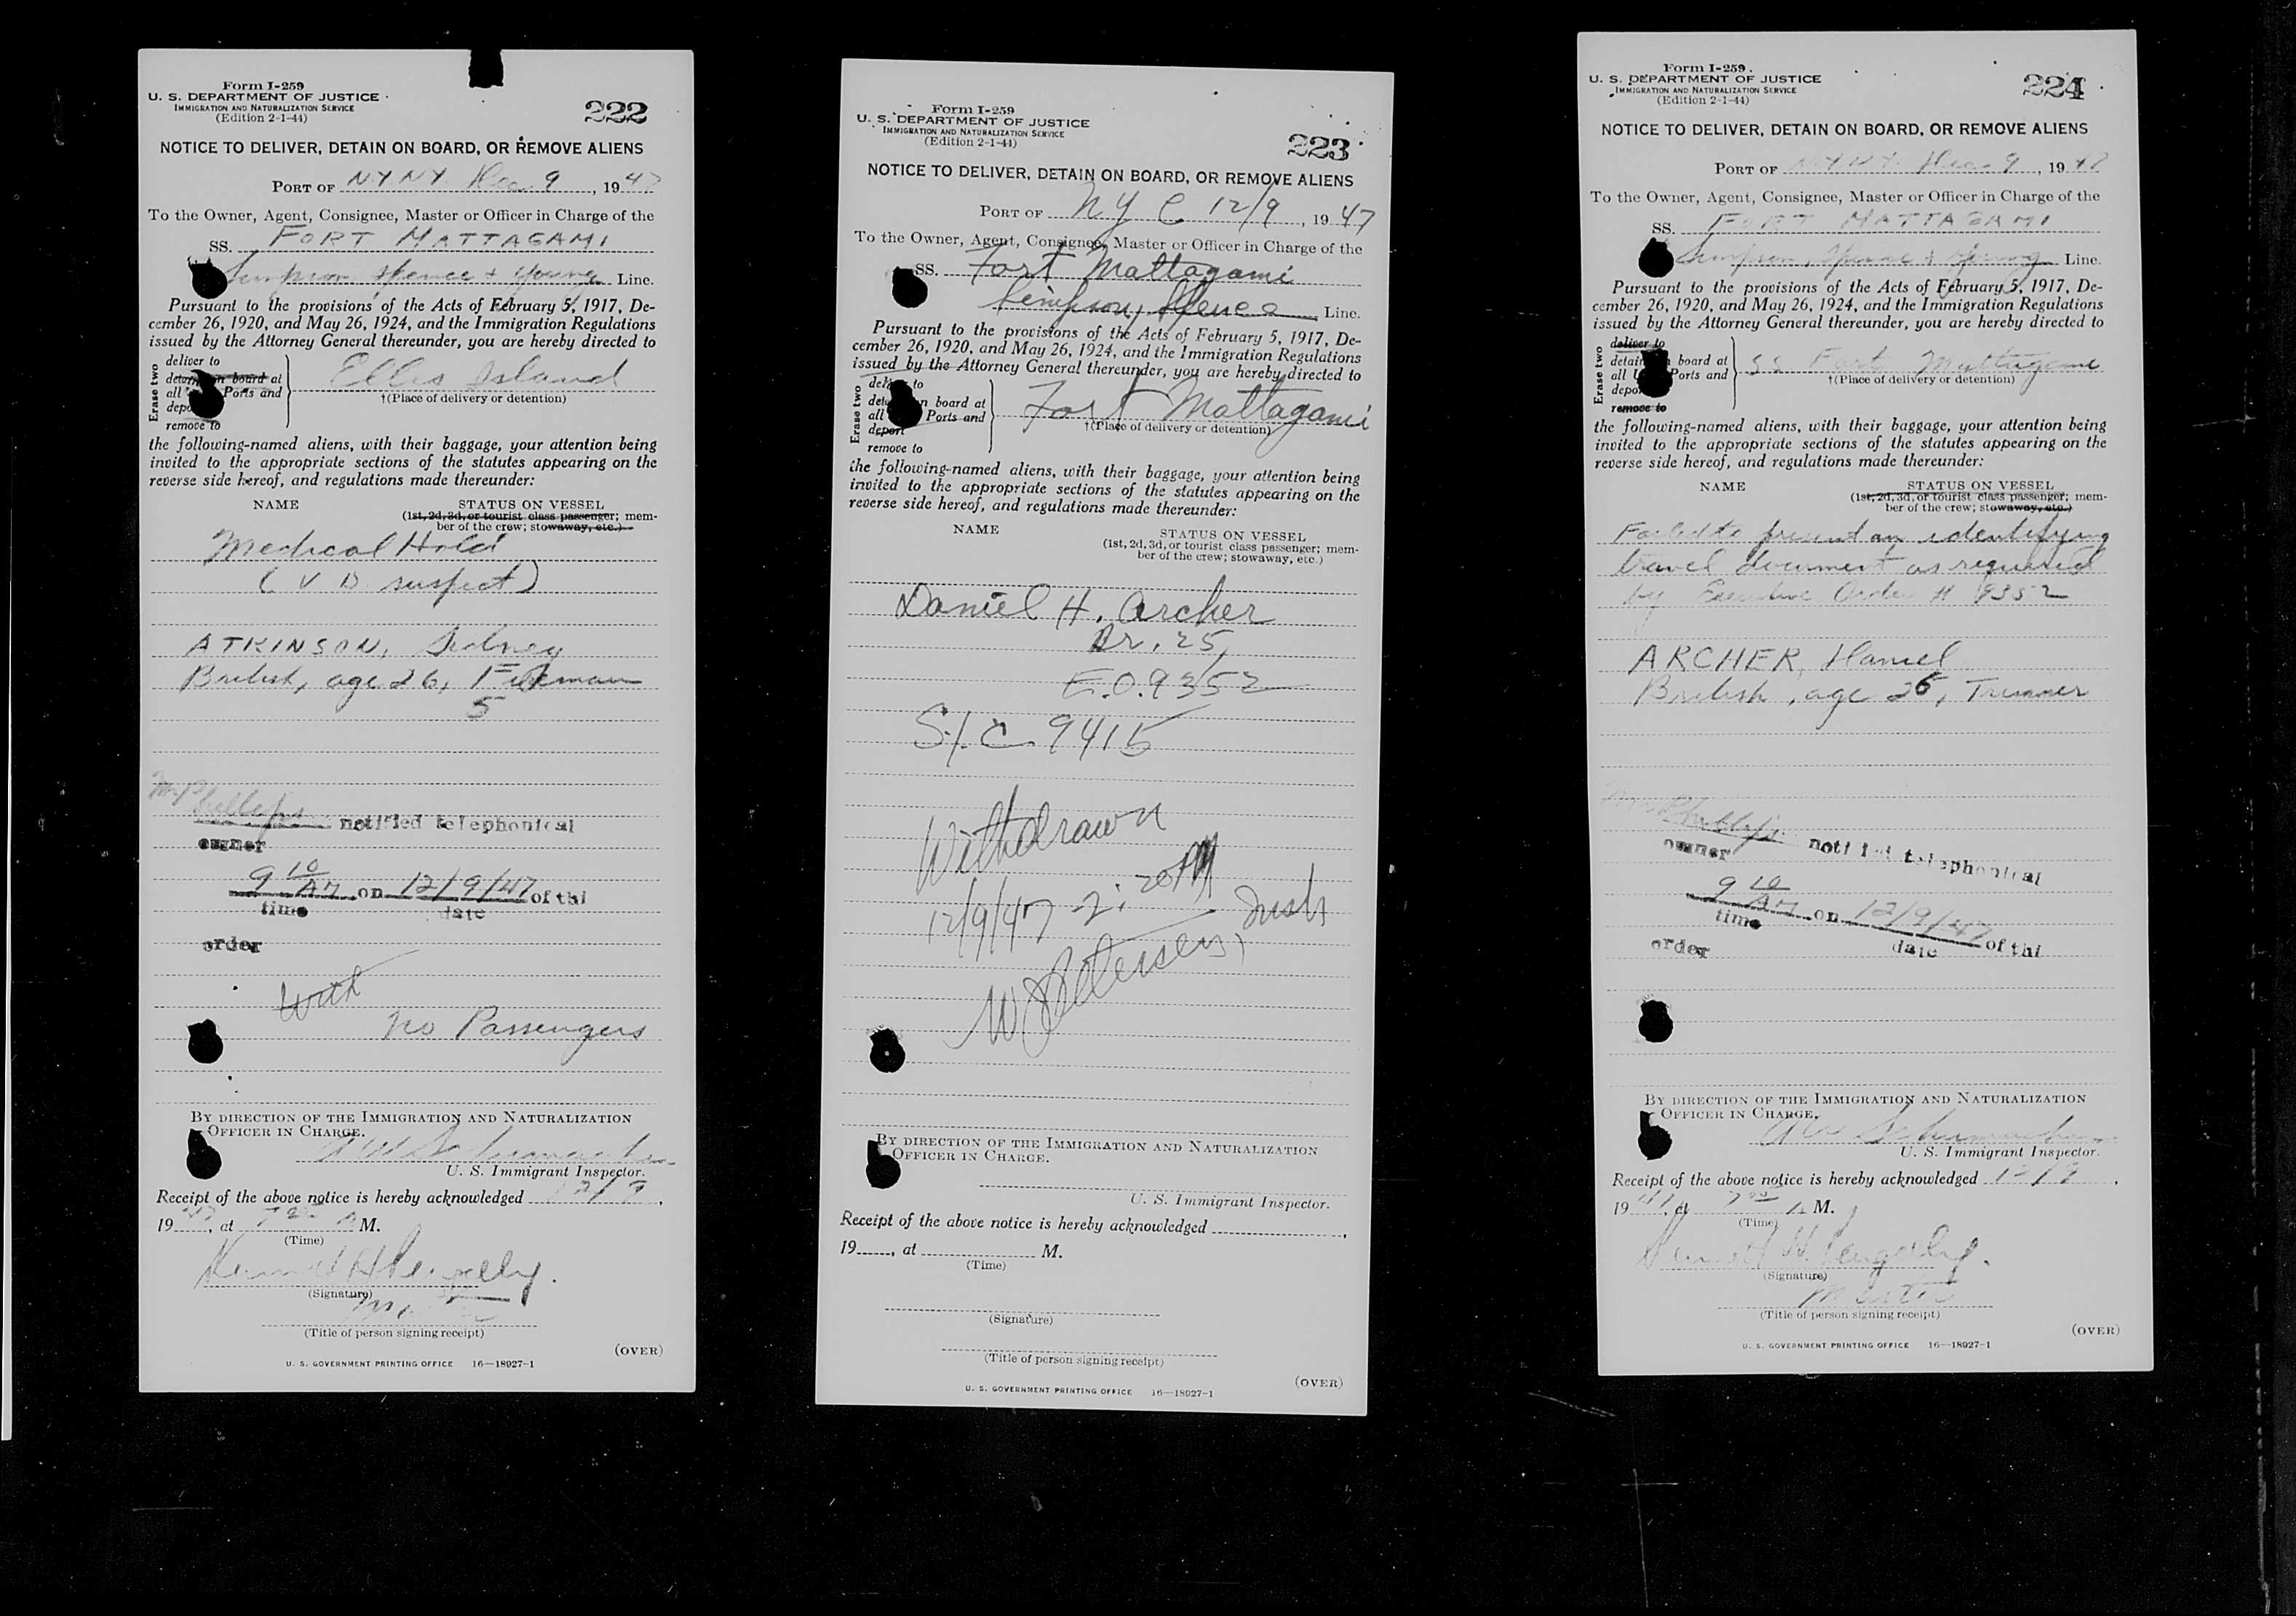 Form I-259
U. S. DEPARTMENT OF JUSTICE
IMMIGRATION AND NATURALIZATION SERVICE
(Edition 2-1-44)
222
NOTICE TO DELIVER, DETAIN ON BOARD, OR REMOVE ALIENS
PORT OF N.Y. N.Y. Dec 9, 1947
To the Owner, Agent, Consignee, Master or Officer in Charge of the
SS. FORT MATTAGAMI
Simpson, Spence & Young Line.
Pursuant to the provisions of the Acts of February 5, 1917, De-
cember 26, 1920, and May 26, 1924, and the Immigration Regulations
issued by the Attorney General thereunder, you are hereby directed to
Erase two
deliver to
on board at
all Ports and
remove to
Ellis Island
†(Place of delivery or detention)
the following-named aliens, with their baggage, your attention being
invited to the appropriate sections of the statutes appearing on the
reverse side hereof, and regulations made thereunder:
NAME
STATUS ON VESSEL
(1st, 2d, 3d, or tourist class passenger; mem-
ber of the crew; stowaway, etc.)
Medical Hold
(V D suspect)
ATKINSON, Sidney
British, age 26, Fireman
5
Mr Phillips notified telephonical
owner
9 10 AM on 12/9/47 of thi
time date
order
With
No Passengers
BY DIRECTION OF THE IMMIGRATION AND NATURALIZATION
OFFICER IN CHARGE.
U. S. Immigrant Inspector.
Receipt of the above notice is hereby acknowledged 12/9,
1947, at 7 00 A M.
(Time)
(Signature)
Master
(Title of person signing receipt)
(OVER)
U. S. GOVERNMENT PRINTING OFFICE 16—18927-1
Form I-259
U. S. DEPARTMENT OF JUSTICE
IMMIGRATION AND NATURALIZATION SERVICE
(Edition 2-1-44)
223
NOTICE TO DELIVER, DETAIN ON BOARD, OR REMOVE ALIENS
PORT OF NYC 12/9, 1947
To the Owner, Agent, Consignee, Master or Officer in Charge of the
SS. Fort Mattagami
Simpson, Spence Line.
Pursuant to the provisions of the Acts of February 5, 1917, De-
cember 26, 1920, and May 26, 1924, and the Immigration Regulations
issued by the Attorney General thereunder, you are hereby directed to
Erase two
to
on board at
all Ports and
deport
remove to
Fort Mattagami
†(Place of delivery or detention)
the following-named aliens, with their baggage, your attention being
invited to the appropriate sections of the statutes appearing on the
reverse side hereof, and regulations made thereunder:
NAME
STATUS ON VESSEL
(1st, 2d, 3d, or tourist class passenger; mem-
ber of the crew; stowaway, etc.)
Daniel H. Archer
Br. 25,
E.O. 9352
S/C 9415
Withdrawn
12/9/47 2:20 PM
BY DIRECTION OF THE IMMIGRATION AND NATURALIZATION
OFFICER IN CHARGE.
U. S. Immigrant Inspector.
Receipt of the above notice is hereby acknowledged
19, at M.
(Time)
(Signature)
(Title of person signing receipt)
(OVER)
U. S. GOVERNMENT PRINTING OFFICE 16—18927-1
Form I-259
U. S. DEPARTMENT OF JUSTICE
IMMIGRATION AND NATURALIZATION SERVICE
(Edition 2-1-44)
224
NOTICE TO DELIVER, DETAIN ON BOARD, OR REMOVE ALIENS
PORT OF N.Y. N.Y. Dec 9, 1947
To the Owner, Agent, Consignee, Master or Officer in Charge of the
SS. FORT MATTAGAMI
Simpson, Spence & Young Line.
Pursuant to the provisions of the Acts of February 5, 1917, De-
cember 26, 1920, and May 26, 1924, and the Immigration Regulations
issued by the Attorney General thereunder, you are hereby directed to
Erase two
deliver to
board at
all Ports and
remove to
SS Fort Mattagami
†(Place of delivery or detention)
the following-named aliens, with their baggage, your attention being
invited to the appropriate sections of the statutes appearing on the
reverse side hereof, and regulations made thereunder:
NAME
STATUS ON VESSEL
(1st, 2d, 3d, or tourist class passenger; mem-
ber of the crew; stowaway, etc.)
Failed to present an identifying
travel document as required
by Executive Order # 9352
ARCHER, Daniel
British, age 25, Trimmer
Mr Phillips notified telephonical
owner
9 10 AM on 12/9/47 of thi
time date
order
BY DIRECTION OF THE IMMIGRATION AND NATURALIZATION
OFFICER IN CHARGE.
Schumacher
U. S. Immigrant Inspector.
Receipt of the above notice is hereby acknowledged 12/9,
1947, at 7 00 A M.
(Time)
(Signature)
Master
(Title of person signing receipt)
(OVER)
U. S. GOVERNMENT PRINTING OFFICE 16—18927-1